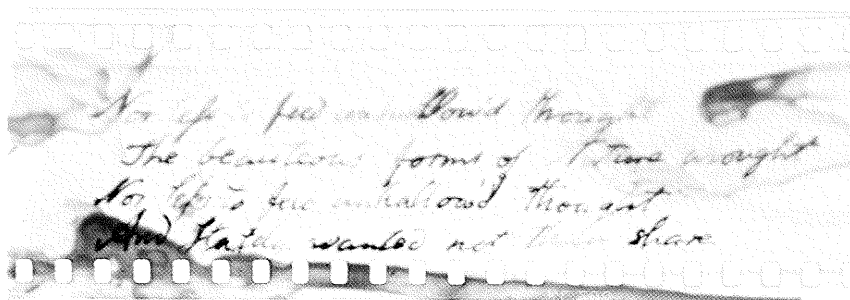 Nor less to feed unhallow'd thought
The beauteous forms of Nature wrought
Nor less to feed unhallow'd thought
And wanted not share